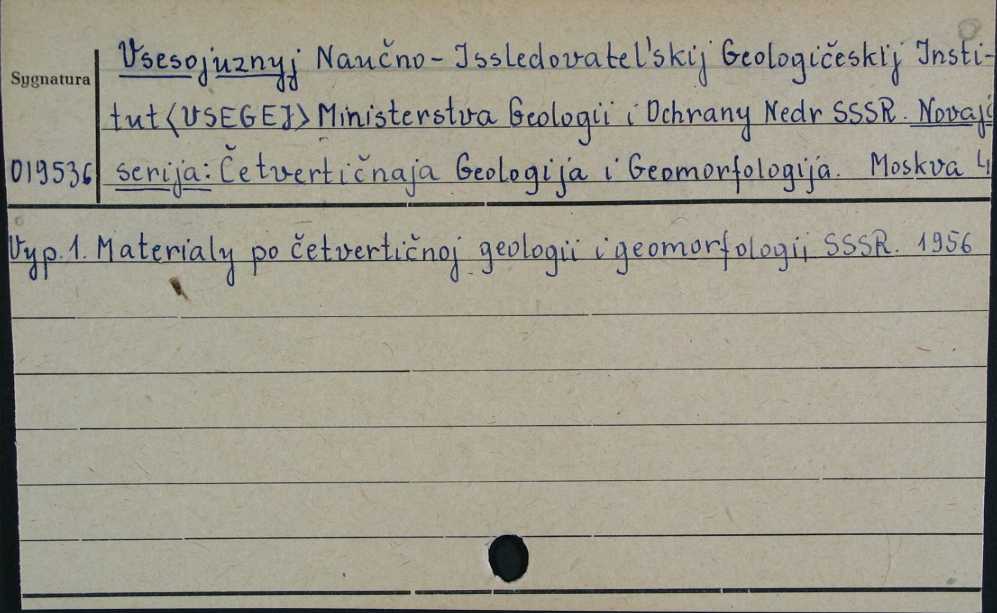 Vsesojuznyj Naučno-Issledovatel'skij Geologičeskij Insti-
Sygnatura
tut <VSEGEJ> Ministerstva Geologii i Ochrany Nedr SSSR. Novaja
019536 serija: Četvertičnaja Geologija i Geomorfologija. Moskva 4
Vyp. 1. Materialy po četvertičnoj geologii i geomorfologii SSSR. 1956